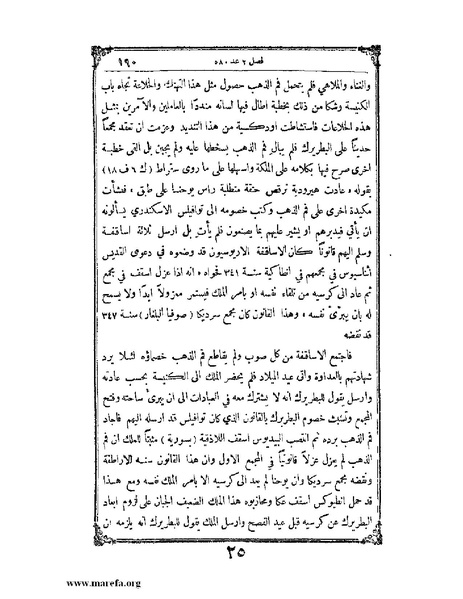 فصل ٢ عد ٥٨٠
١٩٠
والغناء والملاهي فلم يتحمل فم الذهب حصول مثل هذا التهتك والخلاعة تجاه باب
الكنيسة وشكا من ذلك بخطبة اطال فيها لسانه منددًا بالعاملين والآمرين بمثل
هذه الخلاعات فاستشاطت اودكسية من هذا التنديد وعزمت ان تعقد مجمعًا
حديثًا على البطريرك فلم يبال فم الذهب بسخطها عليه ولم يجبن بل القى خطبة
اخرى صرح فيها بكلامه على الملكة واستهلها على ما روى سقراط (ك ٦ ف ١٨)
بقوله «عادت هيرودية ترقص حنقة متطلبة راس يوحنا على طبق» فنشأت
مكيدة اخرى على فم الذهب وكتب خصومه الى توافيلس الاسكندري يسألونه
ان يأتي فيدبرهم او يشير عليهم بما يصنعون فلم يأت بل ارسل ثلاثة اساقفة
وسلم اليهم قانونًا كان الاساقفة الاريوسيون قد وضعوه في دعوى القديس
اثناسيوس في مجمعهم في انطاكية سنة ٣٤١ فحواه «انه اذا عزل اسقف في مجمع
ثم عاد الى كرسيه من تلقاء نفسه او بامر الملك فيستمر معزولًا ابدًا ولا يسمح
له بان يبرئ نفسه» وهذا القانون كان مجمع سرديكا (صوفيا البلغار) سنة ٣٤٧
قد نقضه
فاجتمع الاساقفة من كل صوب ولم يقاطع فم الذهب خصماؤه لئلا يرد
شهادتهم بالعداوة واتى عيد الميلاد فلم يحضر الملك الى الكنيسة بحسب عادته
وارسل يقول للبطريرك انه لا يشترك معه في العبادات الى ان يبرئ ساحته وفتح
المجمع وتشبث خصوم البطريرك بالقانون الذي كان توافيلس قد ارسله اليهم فاجاد
فم الذهب برده ثم انتصب البيديوس اسقف اللاذقية (بسورية) مثبتًا للملك ان فم
الذهب لم يعزل عزلًا قانونيًا في المجمع الاول وان هذا القانون سنه الاراطقة
ونقضه مجمع سرديكا وان يوحنا لم يعد الى كرسيه الا بامر الملك نفسه ومع هذا
قد حمل انطيوكس اسقف عكا ومحازبوه هذا الملك الضعيف الجبان على لزوم ابعاد
البطريرك عن كرسيه قبل عيد الفصح وارسل الملك يقول للبطريرك انه يلزمه ان
٢٥
www.marefa.org